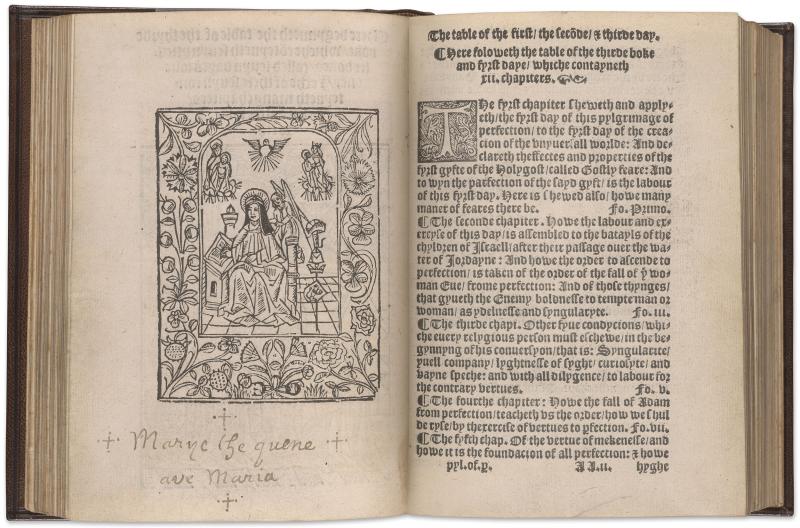 Marye the quene
ave Maria
The table of the first/ the secōde/ & thirde day.
¶ Here foloweth the table of the thirde boke
and fyrst daye/ whiche contayneth
xii. chapiters.
The fyrst chapiter sheweth and apply-
eth/ the fyrst day of this pylgrimage of
perfection/ to the fyrst day of the crea-
cion of the vnyuersall worlde: And de-
clareth theffectes and properties of the
fyrst gyfte of the Holygost/ called Gostly feare: And
to wyn the parfection of the sayd gyft/ is the labour
of this fyrst day. Here is shewed also/ howe many
maner of feares there be. Fo. Primo.
¶ The seconde chapiter. Howe the labour and ex-
ercyse of this day/ is assembled to the batayls of the
chyldren of Israell/ after their passage ouer the wa-
ter of Jordayne: And howe the order to ascende to
perfection/ is taken of the order of the fall of yͤ wo-
man Eue/ frome perfection: And of those thynges/
that gyueth the Enemy boldnesse to tempte man or
woman/ as ydelnesse and syngularyte. Fo. iii.
¶ The thirde chapt. Other fyue condycions/ whi-
che euery relygious person must eschewe/ in the be-
gynnyng of his conuersyon/ that is: Syngularite/
yuell company/ lyghtnesse of syght/ curiosyte/ and
vayne speche: and with all dilygence/ to labour for
the contrary vertues. Fo. v.
¶ The fourthe chapiter: Howe the fall of Adam
from perfection/ teacheth vs the order/ how we shul
de ryse/ by thexercise of vertues to pfection. Fo. vii.
¶ The fyfth chap. Of the vertue of mekenesse/ and
howe it is the foundacion of all perfection: & howe
pyl. of. p. AA.ii. hyghe